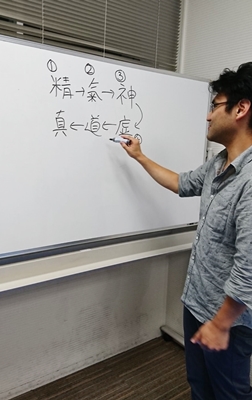 ① ② ③
精→氣→神
真←道←虚